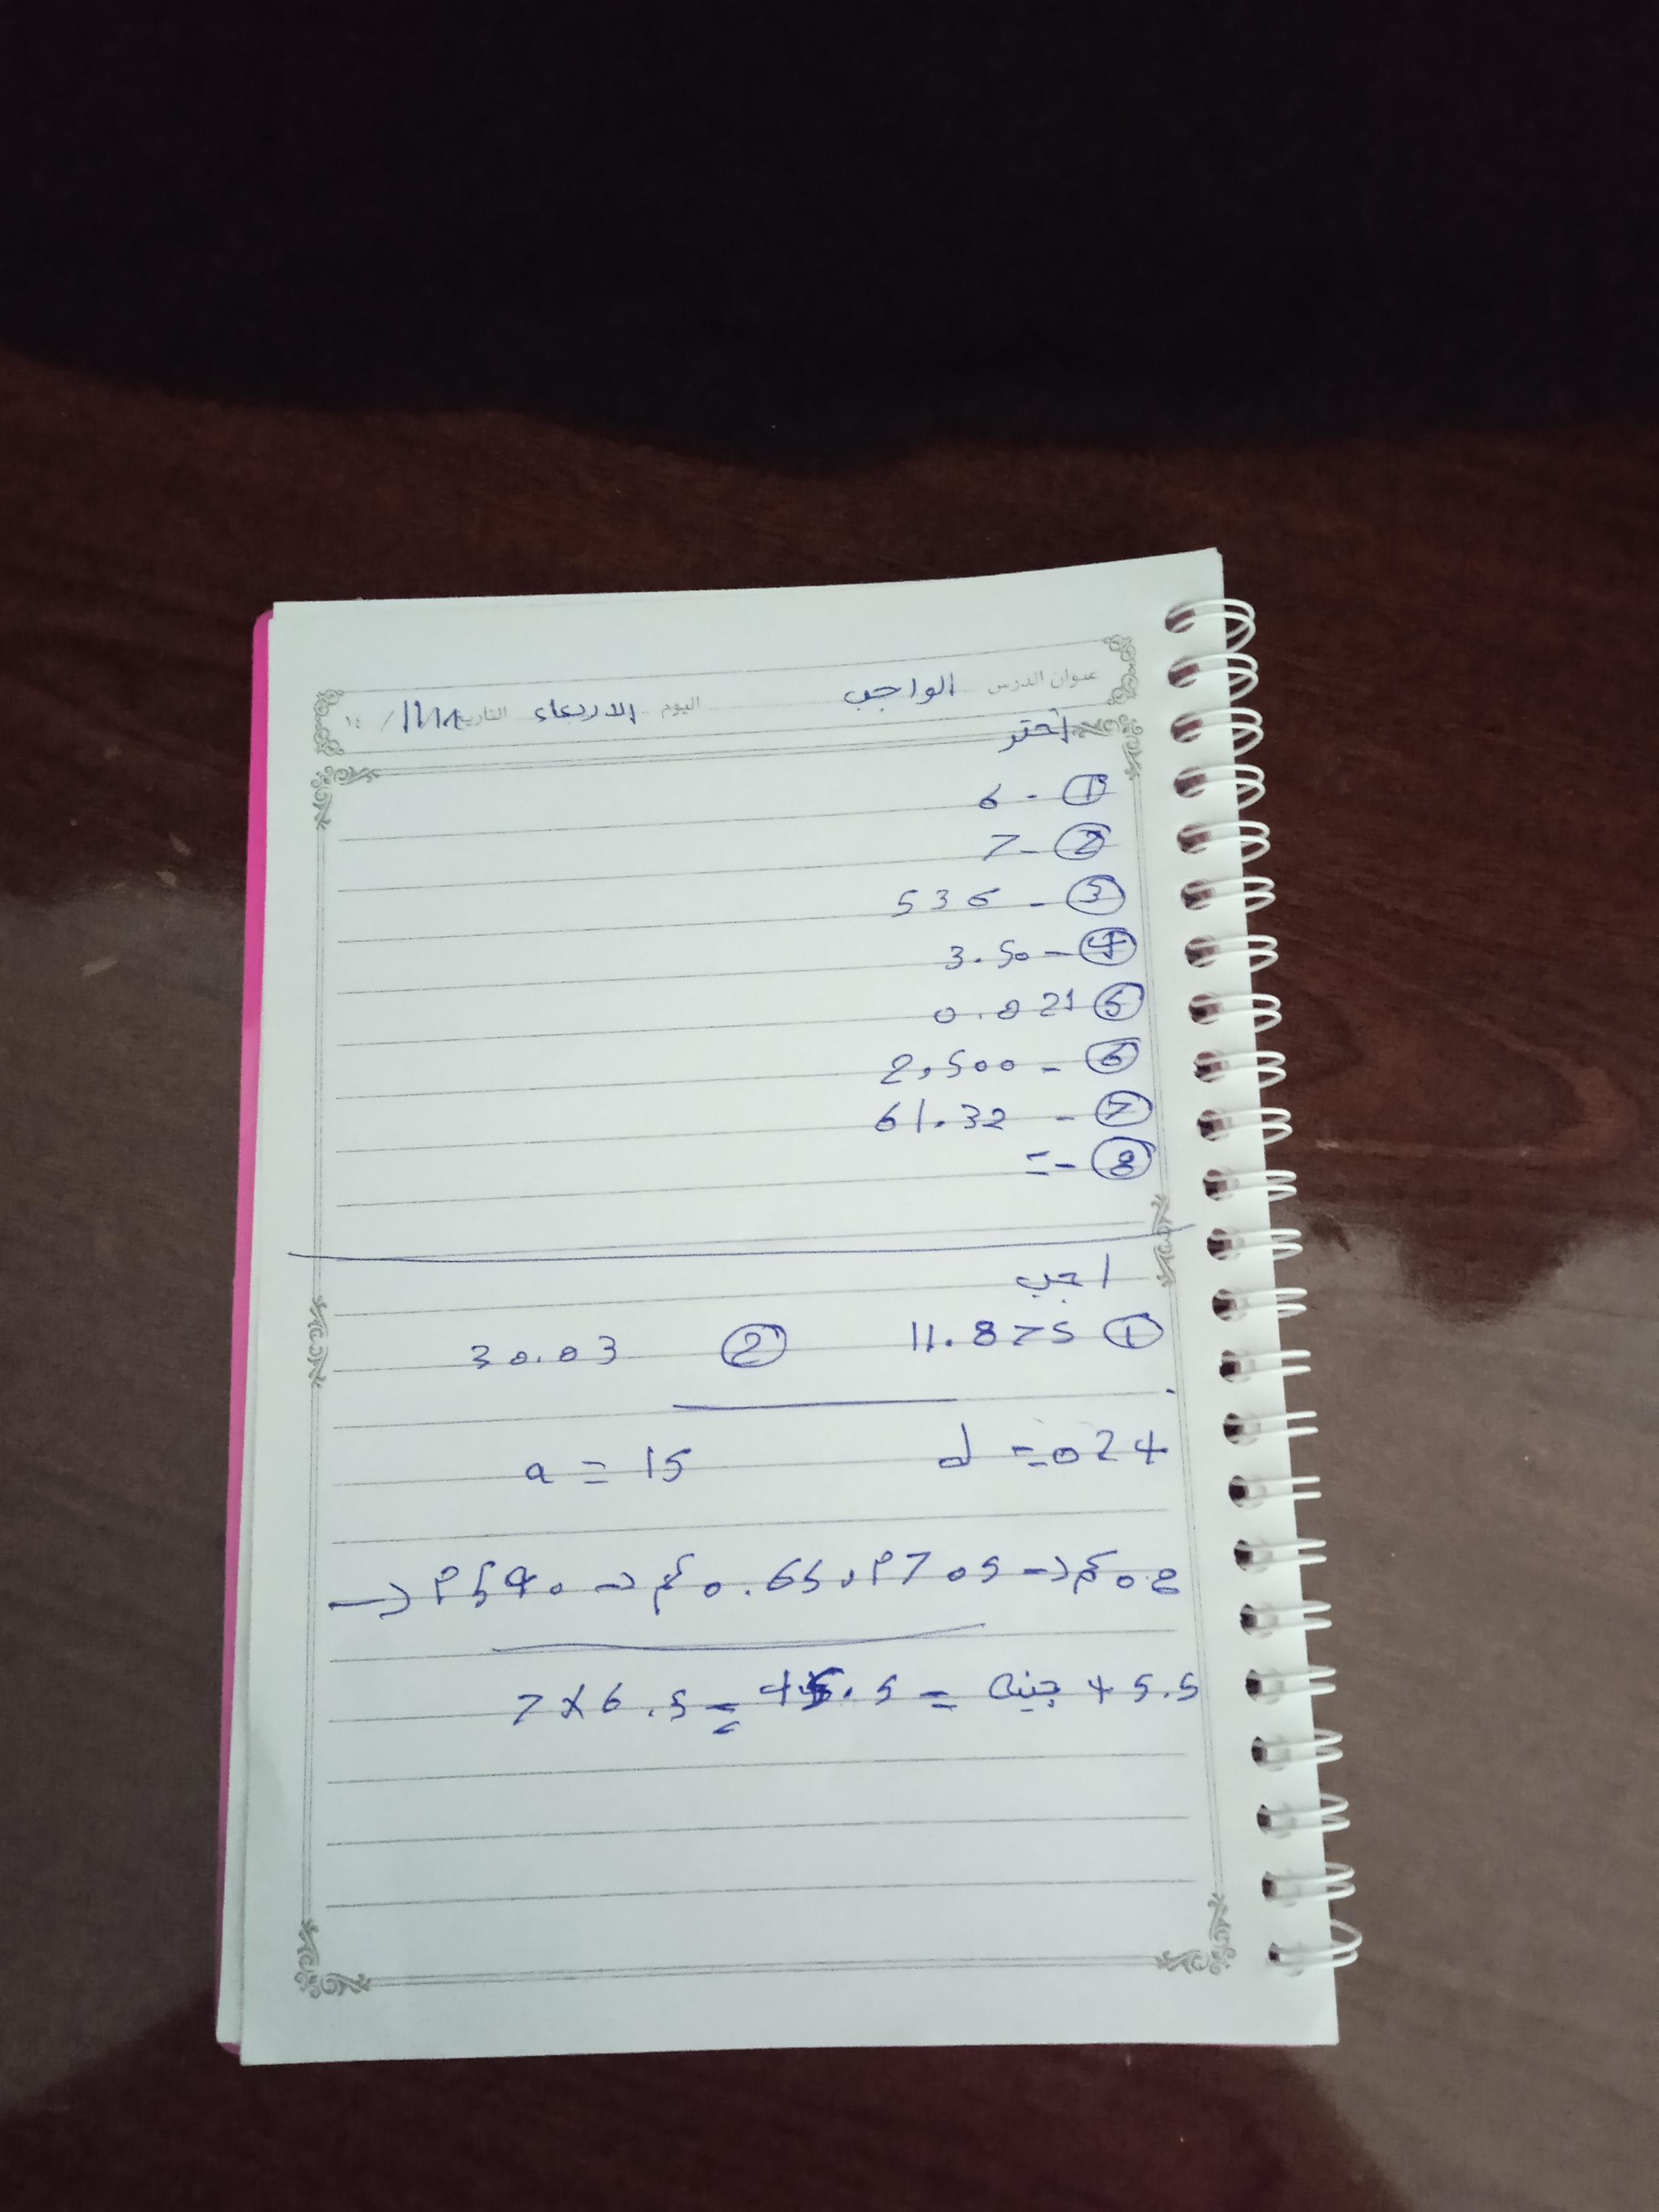 عنوان الدرس الواجب اليوم الاربعاء التاريخ / ١٤
أختر
① - 6
② - 7
③ - 536
④ - 3.50
⑤ 0.021
⑥ - 2,500
⑦ - 61.32
⑧ - =
اجب
① 11.875 ② 30.03
d = 024 a = 15
7 × 6.5 = 45.5 = جنيه 45.5